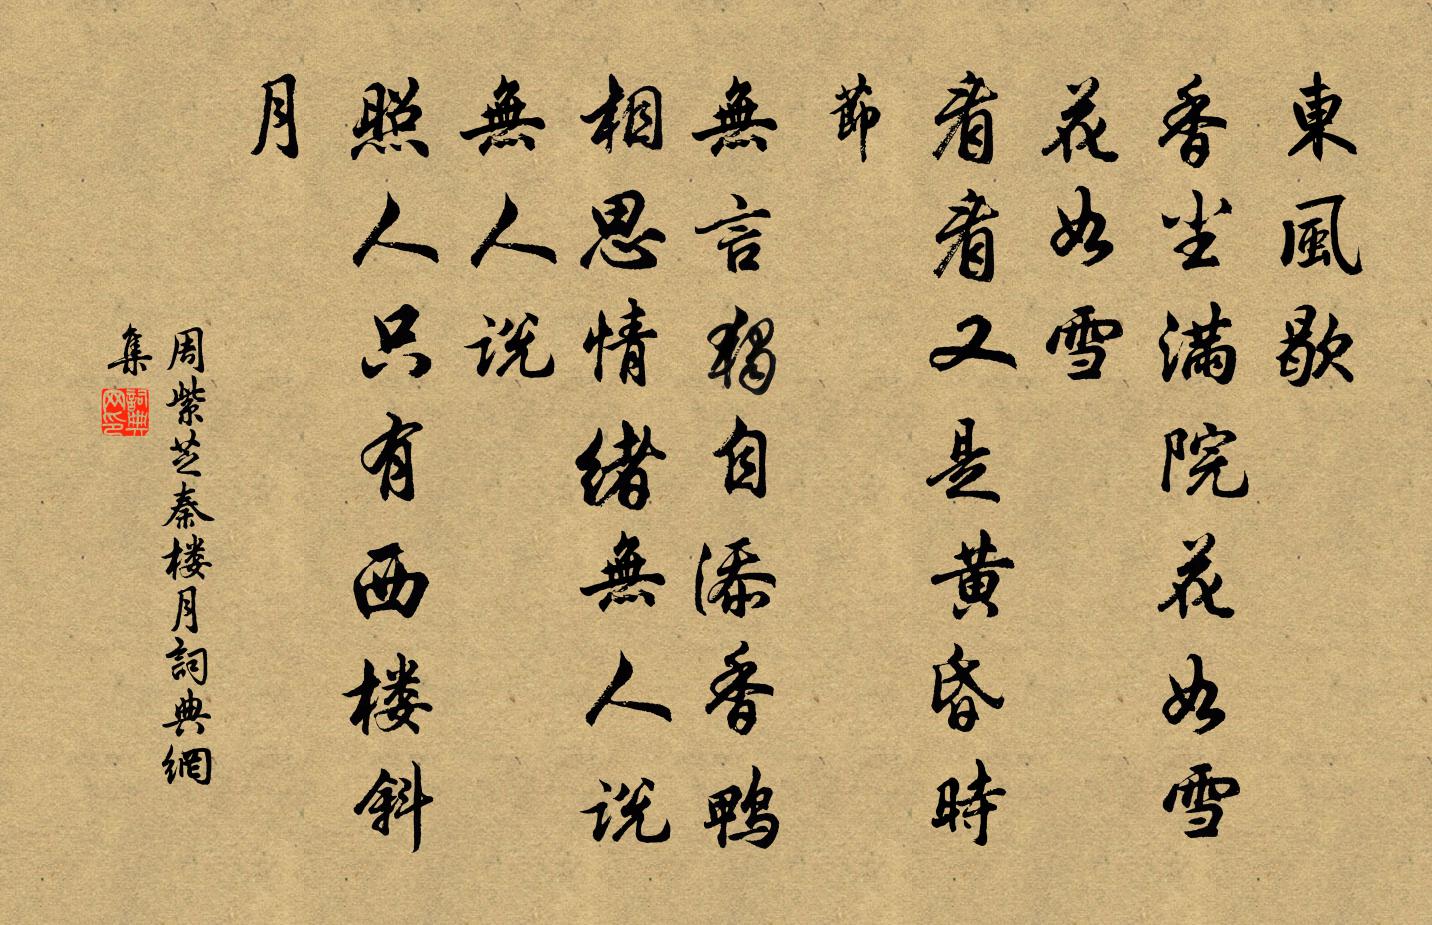 東風歇
香尘满院花如雪
花如雪
看看又是黄昏時
節
無言獨自添香鴨
相思情緒無人説
無人説
照人只有西楼斜
月
周紫芝秦楼月詞典網
集
詞典网印